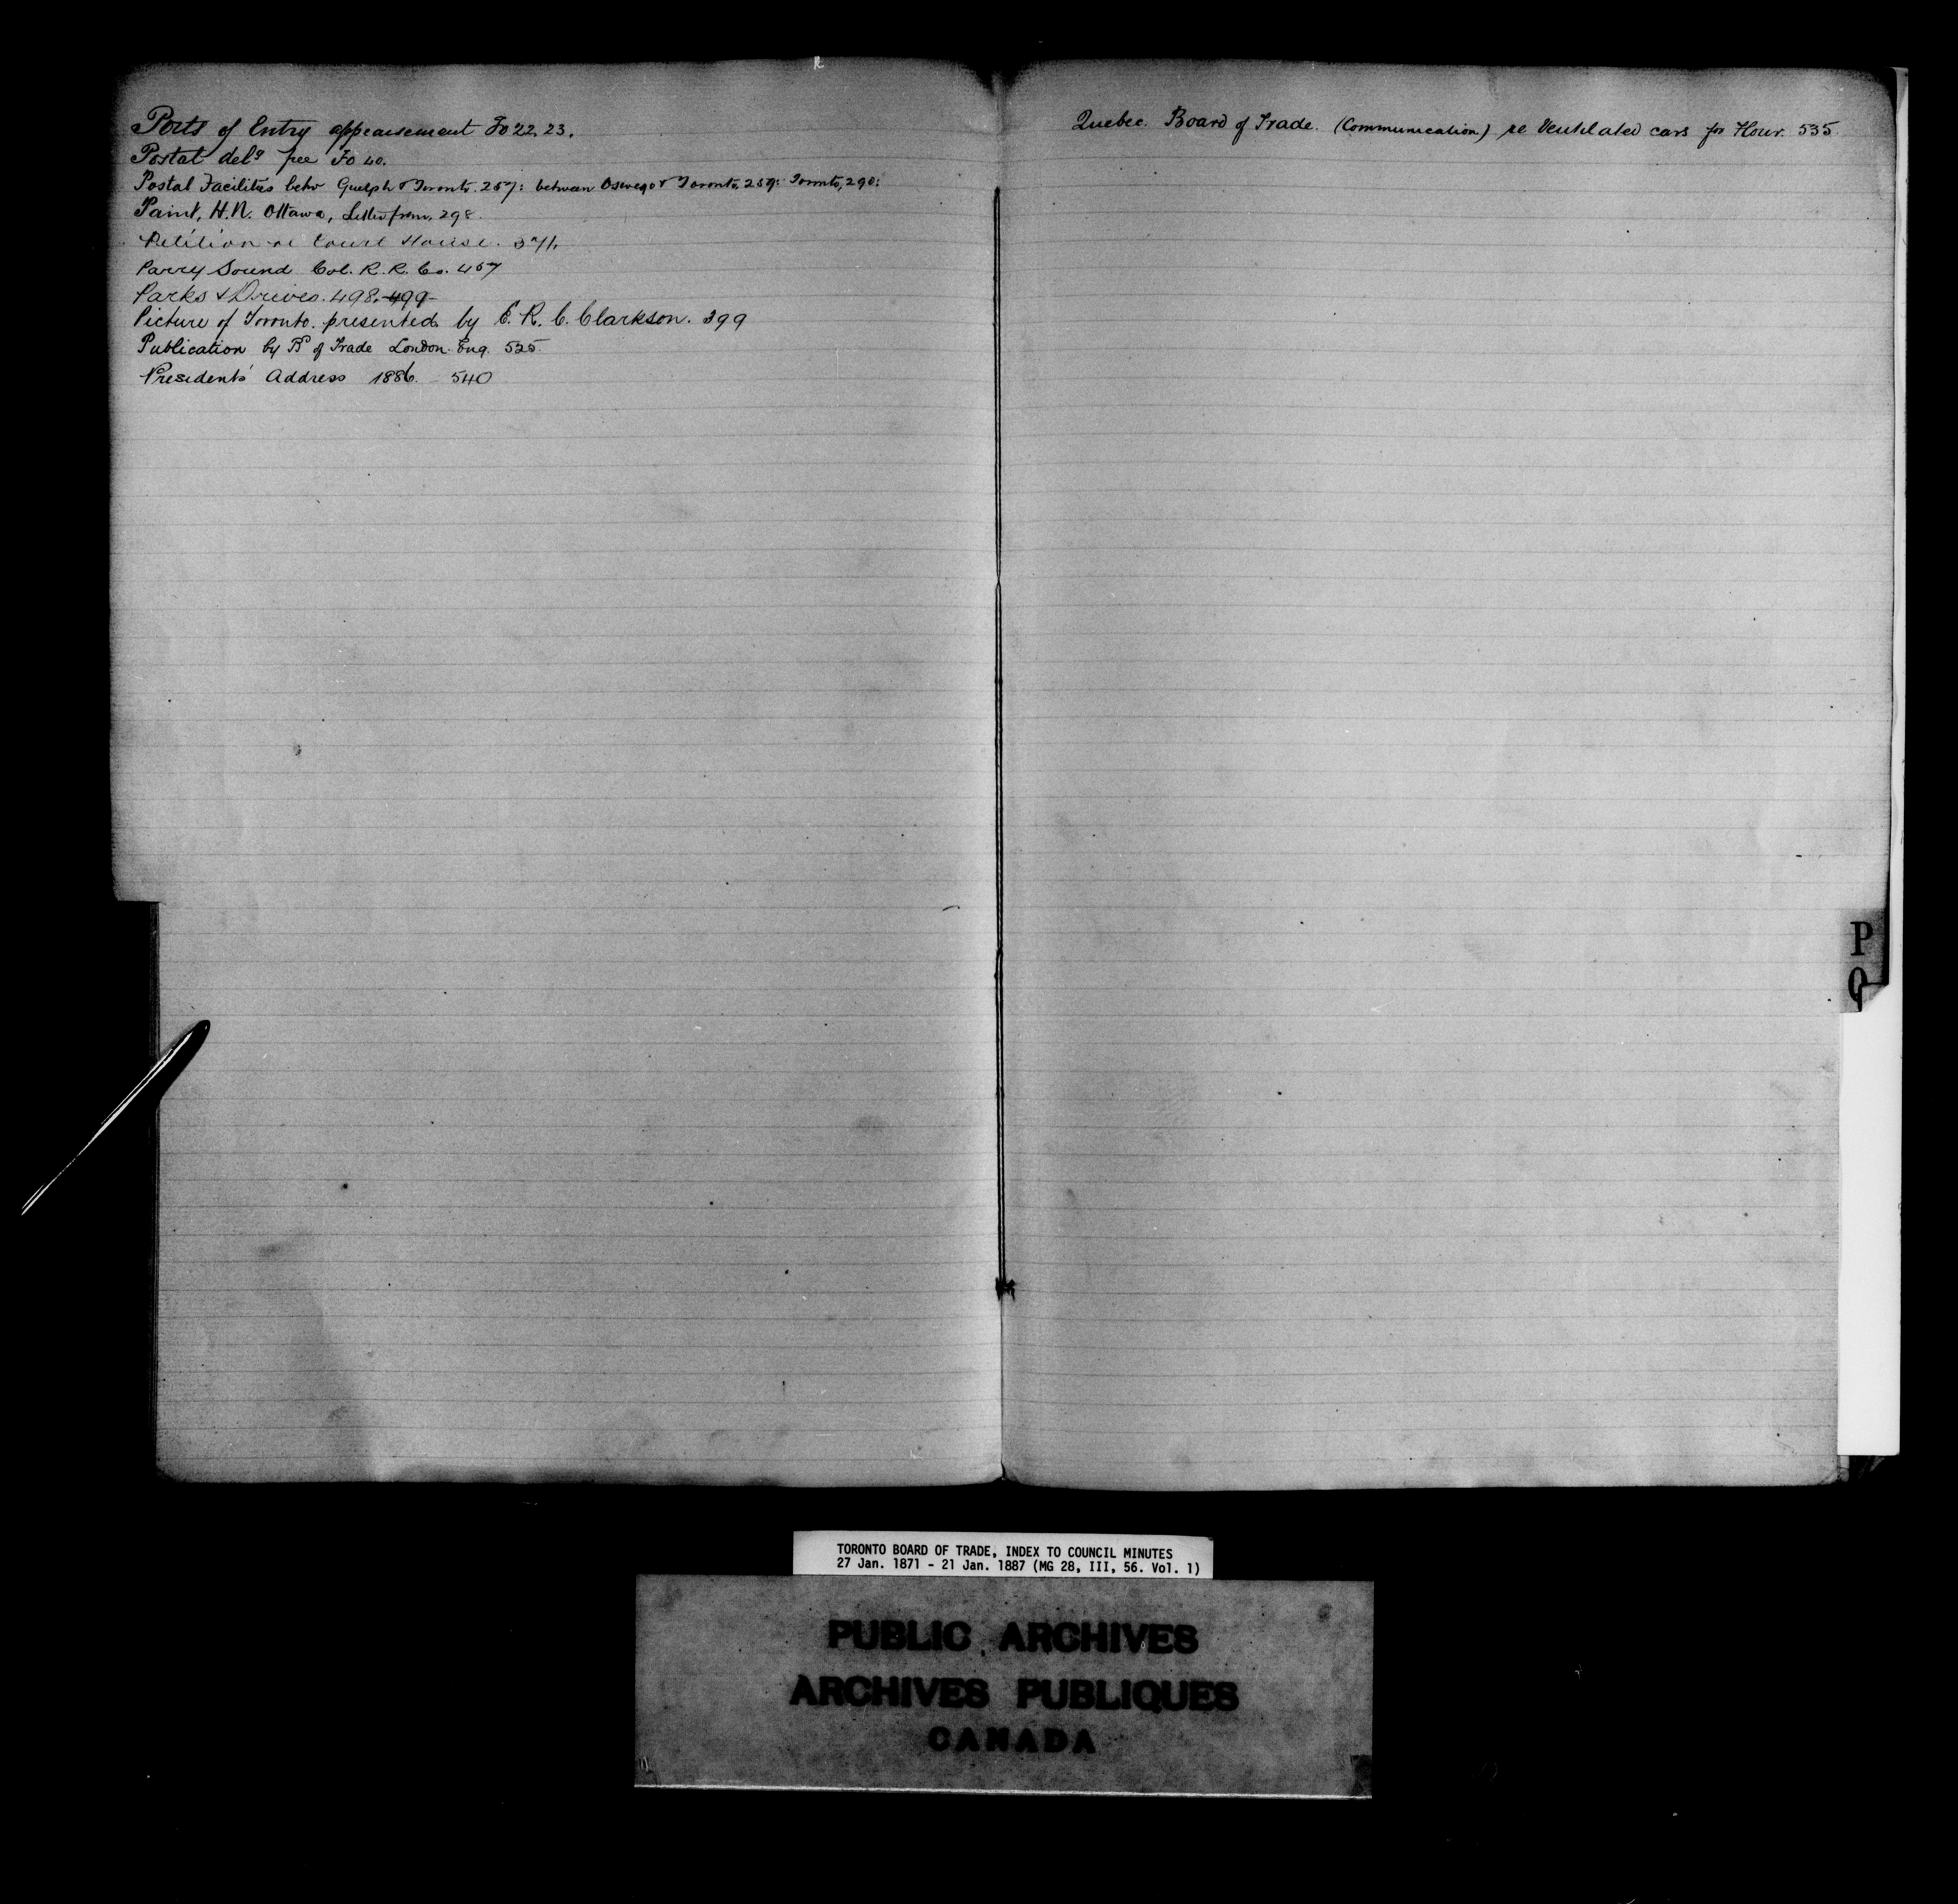 Ports of Entry appraisement Fo 22, 23.
Postal delg free Fo 40.
Postal Facilities betw Guelph & Toronto. 257: between Oswego & Toronto, 259: Toronto, 290:
Paint, H.N. Ottawa, Letter from, 298.
Petition re Court House. 371.
Parry Sound Col. R. R. Co. 457
Parks & Drives. 498. 499
Picture of Toronto. presented by E. R. C. Clarkson. 399
Publication by Bd of Trade London Eng. 525.
Presidents' Address 1886. 540
Quebec. Board of Trade. (Communication) re Ventilated cars for Flour. 535.
P
Q
TORONTO BOARD OF TRADE, INDEX TO COUNCIL MINUTES
27 Jan. 1871 - 21 Jan. 1887 (MG 28, III, 56. Vol. 1)
PUBLIC ARCHIVES
ARCHIVES PUBLIQUES
CANADA